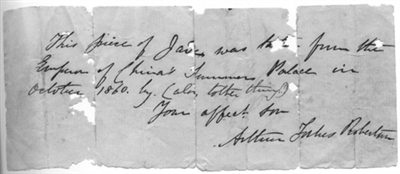 This piece of Jade was tak from the
Emperor of China's Summer Palace in
October 1860. by (also other things)
Your affect. son
Arthur Forbes Robertson